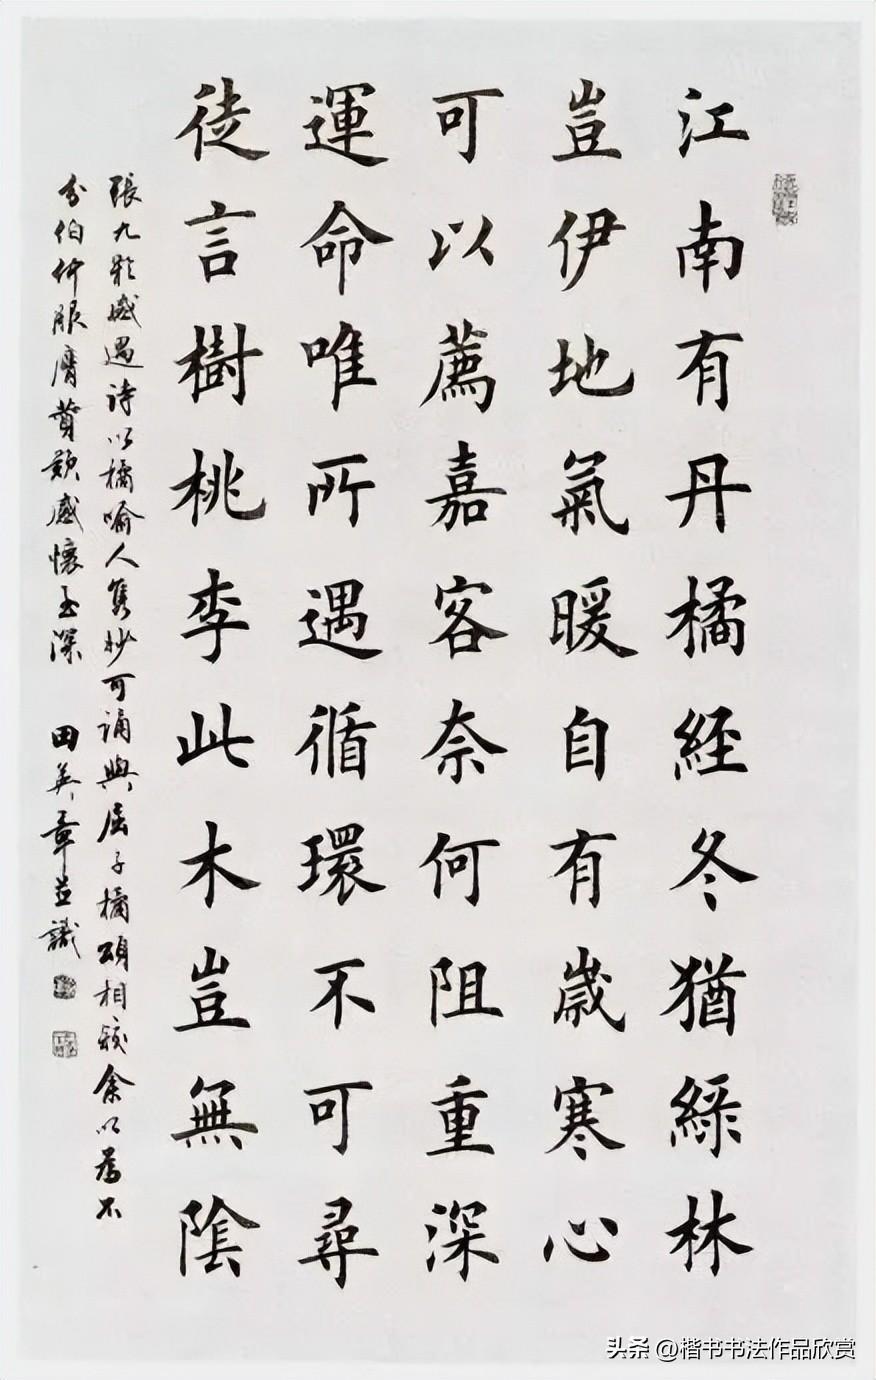 江南有丹橘經冬猶綠林
豈伊地氣暖自有歲寒心
可以薦嘉客奈何阻重深
運命唯所遇循環不可尋
徒言樹桃李此木豈無陰
張九齡感遇詩以橘喻人雋妙可誦與屈子橘頌相較余以為不
分伯仲服膺贊歎感懷至深 田英章並識
头条 @楷书书法作品欣赏